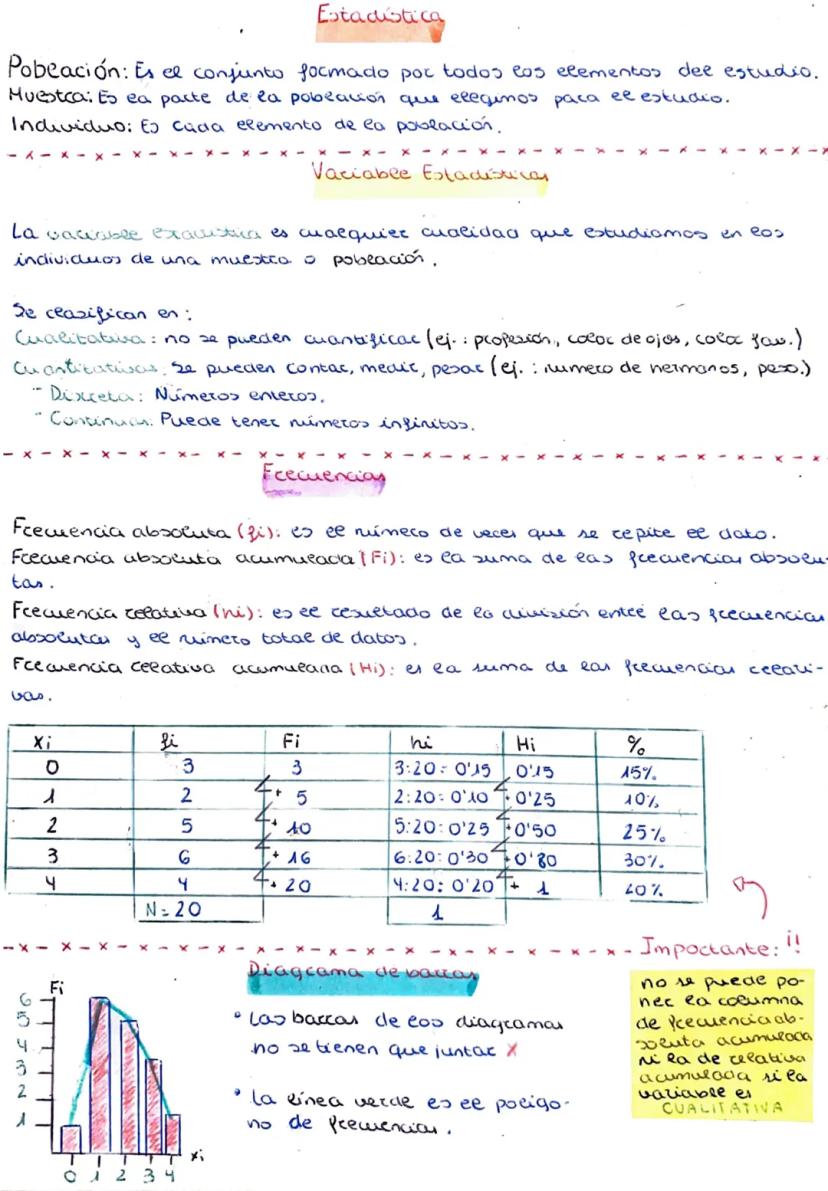 Estadística
Población: Es el conjunto formado por todos los elementos del estudio.
Muestra: Es la parte de la población que elegimos para el estudio.
Individuo: Es cada elemento de la población.
Variable Estadística
La variable estadística es cualquier cualidad que estudiamos en los
individuos de una muestra o población.
Se clasifican en:
Cualitativa: no se pueden cuantificar (ej.: profesión, color de ojos, color fav.)
Cuantitativas: Se pueden contar, medir, pesar (ej.: numero de hermanos, peso.)
- Discreta: Números enteros.
- Continua: Puede tener números infinitos.
Frecuencias
Frecuencia absoluta (fi): es el número de veces que se repite el dato.
Frecuencia absoluta acumulada (Fi): es la suma de las frecuencias absolu-
tas.
Frecuencia relativa (hi): es el resultado de la división entre las frecuencias
absolutas y el número total de datos.
Frecuencia relativa acumulada (Hi): es la suma de las frecuencias relati-
vas.
xi fi Fi hi Hi %
0 3 3 3:20=0'15 0'15 15%
1 2 + 5 2:20=0'10 + 0'25 10%
2 5 + 10 5:20=0'25 + 0'50 25%
3 6 + 16 6:20=0'30 + 0'80 30%
4 4 + 20 4:20=0'20 + 1 20%
N=20 1
Importante: !!
no se puede po-
ner la columna
de frecuencia ab-
soluta acumulada
ni la de relativa
acumulada si la
variable es
CUALITATIVA
Diagrama de barras
• Las barras de los diagramas
no se tienen que juntar X
• La línea verde es el polígo-
no de frecuencias.
Fi
6
5
4
3
2
1
xi
0 1 2 3 4